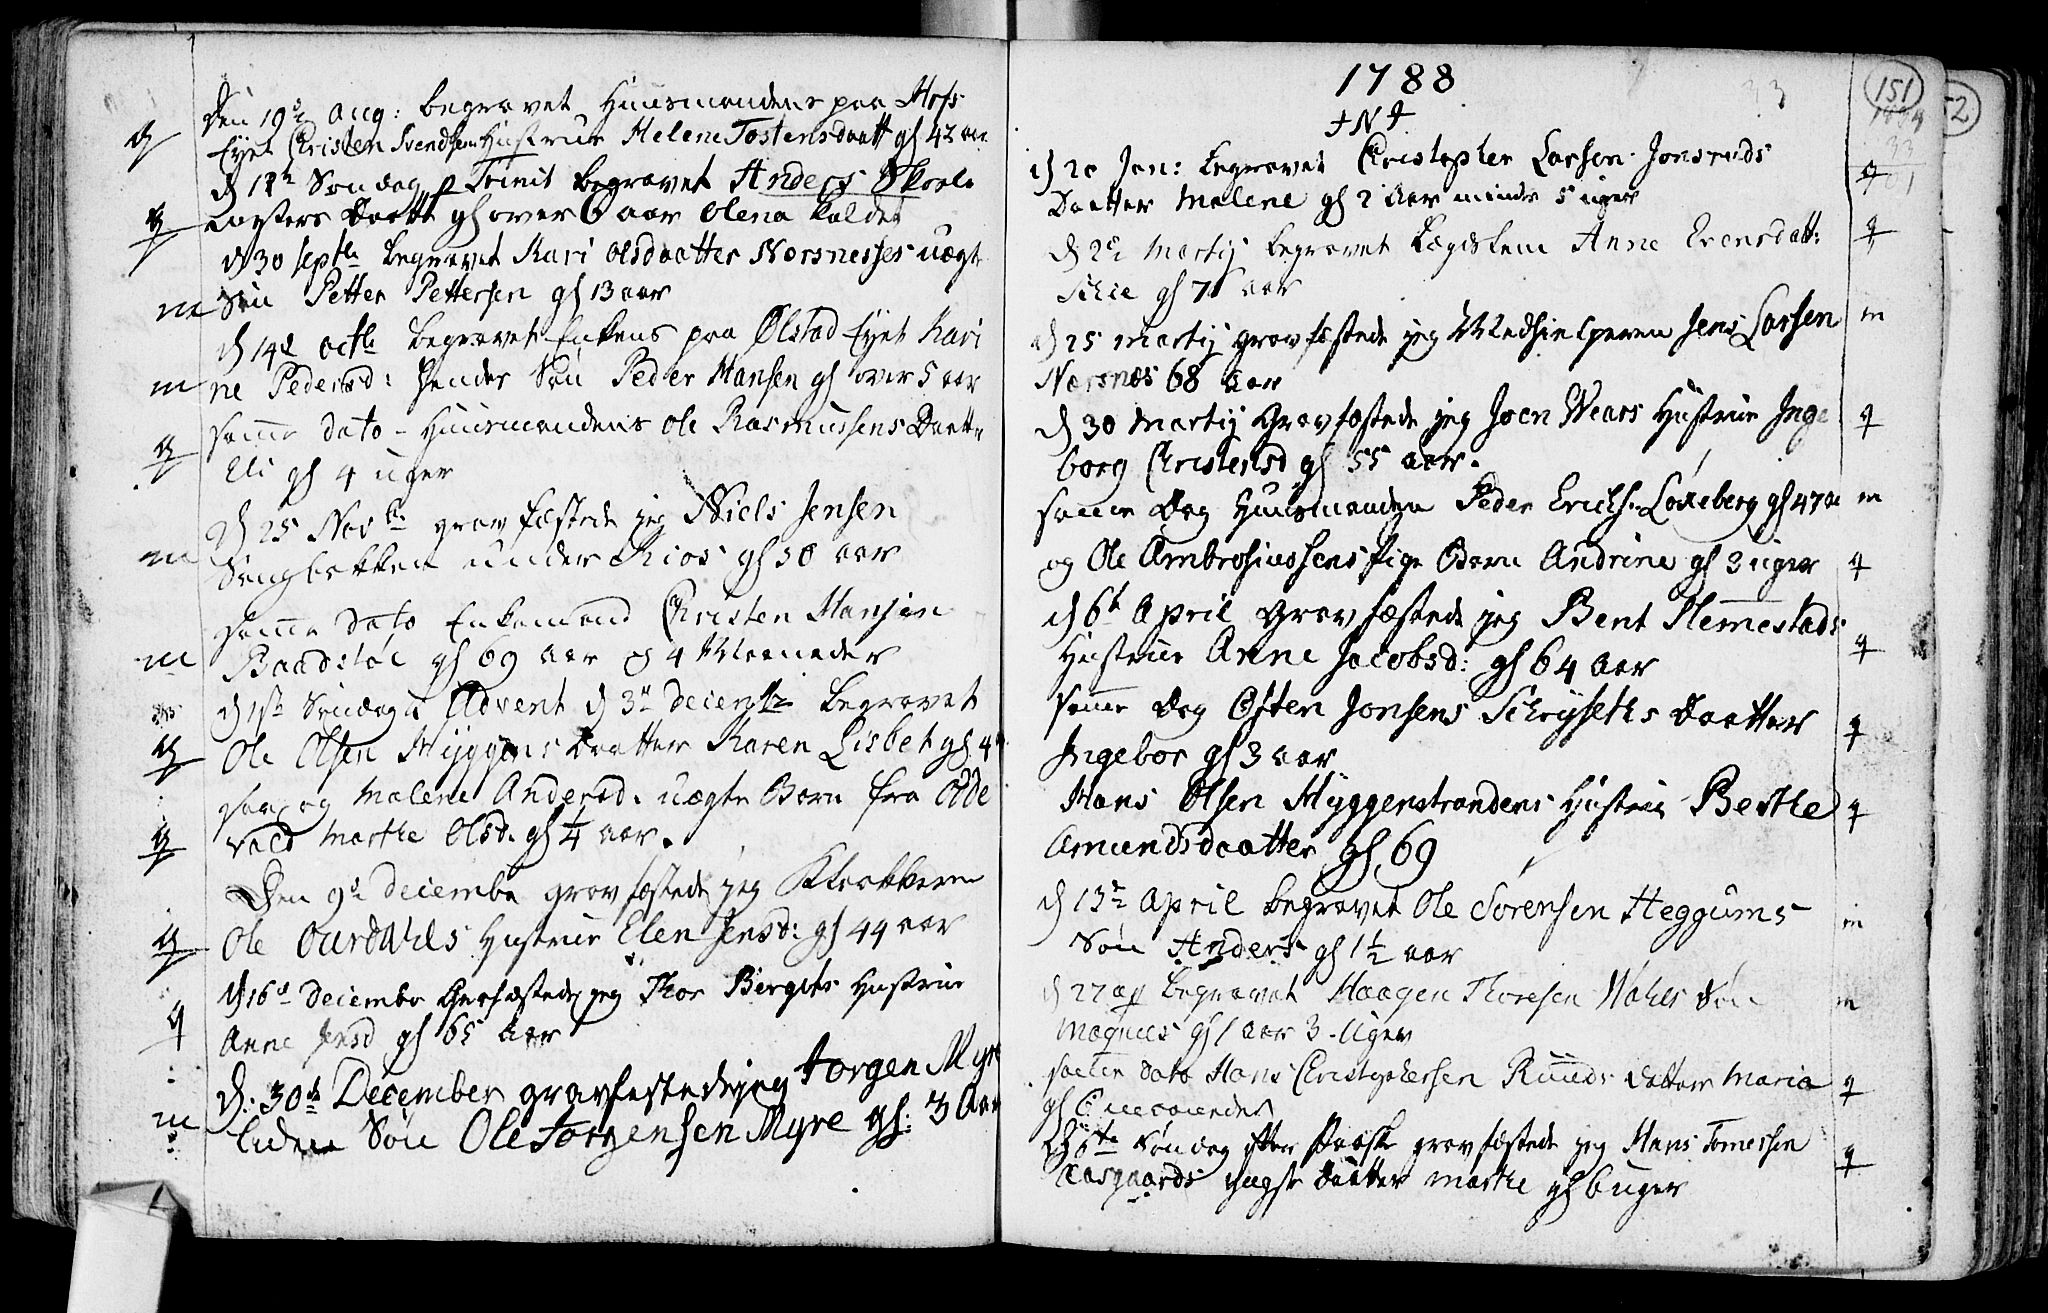 Den 19de Aug: begravet Huusmandens paa Hofs
Eyet Christen Svendsens Hustrue Helene Tostensdaatt gl 42 aar
d 12te Søndag p Trinit begravet Anders Skole
mesters Daatt gl over 6 aar Olena kaldet
d 30 septbr begravet Kari Olsdaatter Nersnesses uægte
Søn Petter Pettersen gl 13 aar
d 14de octbr begravet Enkens paa Ølstad Eyet Kari
ne Pedersd: hendes Søn Peder Hansen gl over 5 aar
samme dato - Huusmandens Ole Rasmussens Daatter
Eli gl 4 uger
d 25 Novbr gravfæstede jeg Niels Jensen
bakken under Kios gl 50 aar
samme dato Enkemand Christen Hansen
Baadstøe gl 69 aar og 4 Maaneder
d 1ste Søndag i Advent d 3die decembr begravet
Ole Olsen Myggens Daatter Karen Lisbet gl 4
og Malene Andersd. uægte Barn fra Odde
vald Marthe Olsd. gl 1/4 aar.
Den 9de decembr gravfæstede jeg Klokkeren
Ole Hustrue Elen Jensd: gl 44 aar
d 16de decembr Gravfæstede jeg Thor Bergets Hustrue
Anne Jensd gl 65 Aar
d: 30te December gravfestede jeg Jorgen Myre
liden Søn Ole Jorgensen Myre gl: 3 Aar
1788
J N J
151
52
d 20 Jan: begravet Christopher Larsen Jonsruds
Daatter Malene gl 2 Aar mindre 5 uger
d 2de Martij begravet Lægdslem Anne Evensdatt:
gl 7 aar
d 25 martij gravfæstede jeg Medhielperen Jens Larsen
Nærsnæs 68 Aar
d 30 Martij Gravfæstede jeg Joen Wears Hustrue Inge
borg Christensd gl 55 aar.
samme Dag Huusmanden Peder Erichs. Løkeberg gl 47 a
og Ole Ambrosiussens Pige Barn Andrine gl 3 uger
d 6te April Gravfæstede jeg Bent Hemmestads
Hustrue Anne Jacobsd: gl 64 Aar
samme Dag Osten Jonsens Schøyseths Daatter
Ingebor gl 3 aar
Hans Olsen Myggenstrandens Hustrue Berthe
Amundsdaatter gl 69
d 13de April begravet Ole Sørensen Heggums
Søn Anders gl 1 1/2 aar
d 27 ap begravet Haagen Thoresen Wahls Søn
Magnus gl 1 aar 3 Uger
samme dato Hans Christophersen Ruuds datter Maria
gl 6 maaneder
Søndag efter Paaske gravfæstede jeg Hans Tomessen
Aasgaards yngste Daatter Marthe gl 6 uger